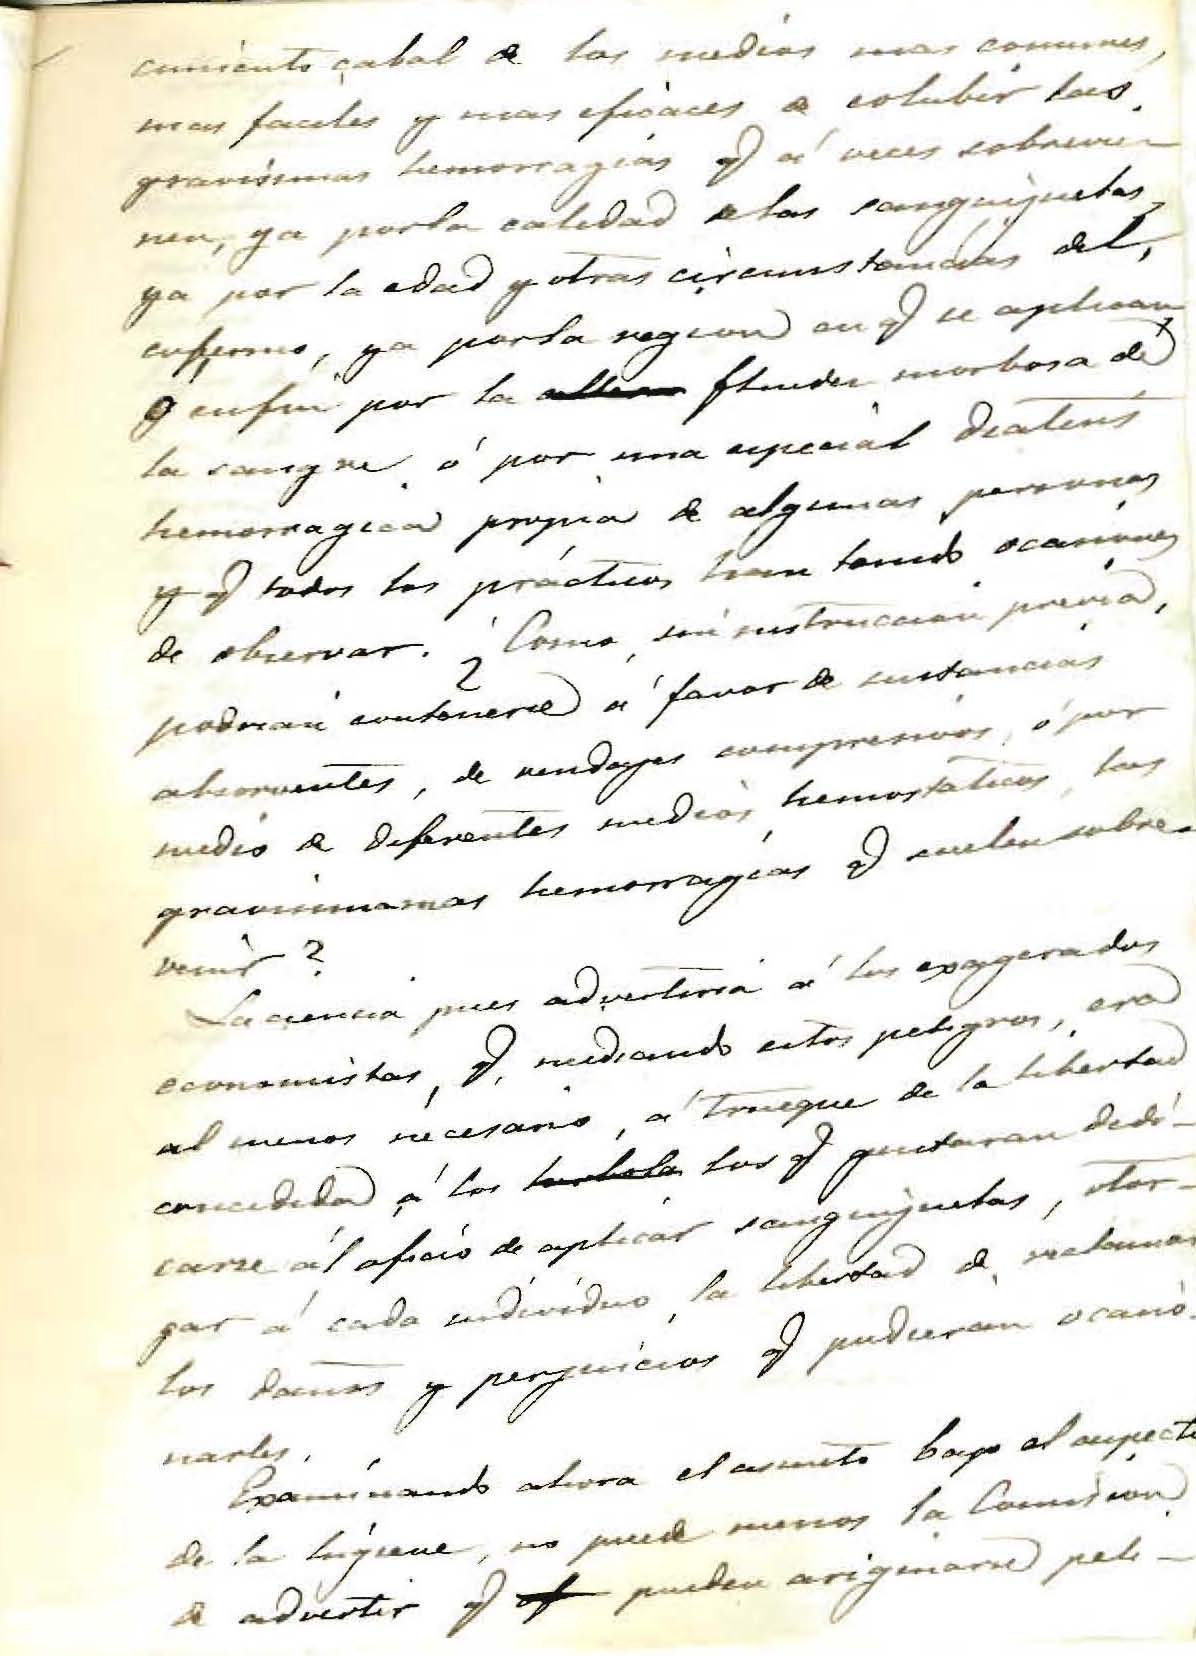 cimiento cabal de los medios mas comunes,
mas faciles y mas eficaces de cohibir las
gravisimas hemorragias q̃ á veces sobrevie-
nen, ya por la calidad de las sanguijuelas,
ya por la edad y otras circunstancias del
enfermo, ya por la region en q̃ se aplican
y en fin por la fluidez morbosa de
la sangre ó por una especial diatesis
hemorragica propia de algunas personas
y q̃ todos los prácticos han tenido ocasiones
de observar. ¿Como, sin instruccion previa,
podrian contenerse á favor de sustancias
absorventes, de vendages compresivos, ó por
medio de diferentes medios hemostaticos, las
hemorragias q̃ suelen sobre-
venir?
La ciencia pues advertiria á los exagerados
economistas, q̃, mediando estos peligros, era
al menos necesario, á trueque de la libertad
concedida á los los q̃ gustaran dedi-
carse al oficio de aplicar sanguijuelas, otor-
gar á cada individuo la libertad de reclamar
los daños y perjuicios q̃ pudieran ocasio-
narles.
Examinando ahora el asunto bajo el aspecto
de la higiene, no puede menos la Comision
de advertir q̃ pueden originarse peli-